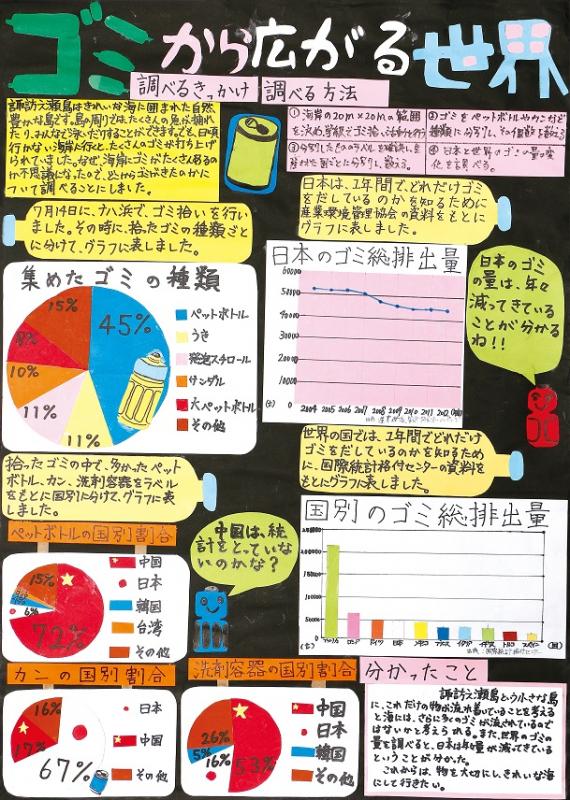 ゴミから広がる世界
調べるきっかけ
諏訪之瀬島はきれいな海に囲まれた自然
豊かな島です。島の周りではたくさんの魚が捕れ
たり、みんなで泳いだりすることができます。でも、日頃
行かない海岸へ行くと、たくさんのゴミが打ち上げ
られていました。なぜ、海岸にゴミがたくさんあるの
か不思議になったので、どこからゴミがきたのかに
ついて調べることにしました。
調べる方法
①海岸の20m×20mの範囲
②ゴミをペットボトルやカンなど
種類に分別し、その個数を数える
④日本と世界のゴミの量の変
化を調べる。
7月14日に、ナハ浜で、ゴミ拾いを行い
ました。その時に、拾ったゴミの種類ごと
に分けて、グラフに表しました。
集めたゴミの種類
45%
11%
11%
10%
8%
15%
ペットボトル
うき
発泡スチロール
サンダル
大ペットボトル
その他
日本は、1年間で、どれだけゴミ
をだしているのかを知るために
産業環境管理協会の資料をもとに
グラフに表しました。
日本のゴミ総排出量
60000
50000
40000
30000
20000
10000
0
(t)
2004 2005 2006 2007 2008 2009 2010 2011 2012
日本のゴミ
の量は、年々
減ってきている
ことが分かる
ね!!
拾ったゴミの中で、多かったペット
ボトル、カン、洗剤容器をラベル
をもとに国別に分けて、グラフに表
しました。
ペットボトルの国別割合
72%
6%
15%
中国
日本
韓国
台湾
その他
中国は、統
計をとっていな
いのかな?
世界の国では、1年間でどれだけ
ゴミをだしているのかを知るため
に、国際統計格付センターの資料を
もとにグラフに表しました。
国別のゴミ総排出量
(t)
(国)
カンの国別割合
67%
17%
16%
日本
中国
その他
洗剤容器の国別割合
53%
16%
5%
26%
中国
日本
韓国
その他
分かったこと
諏訪之瀬島という小さな島
に、これだけの物が流れ着いていることを考える
と海には、さらに多くのゴミが流されているので
はないかと考えられる。また、世界のゴミの
量を調べると、日本は年々量が減ってきている
ということが分かった。
これからは、物を大切にし、きれいな海
にして行きたい。